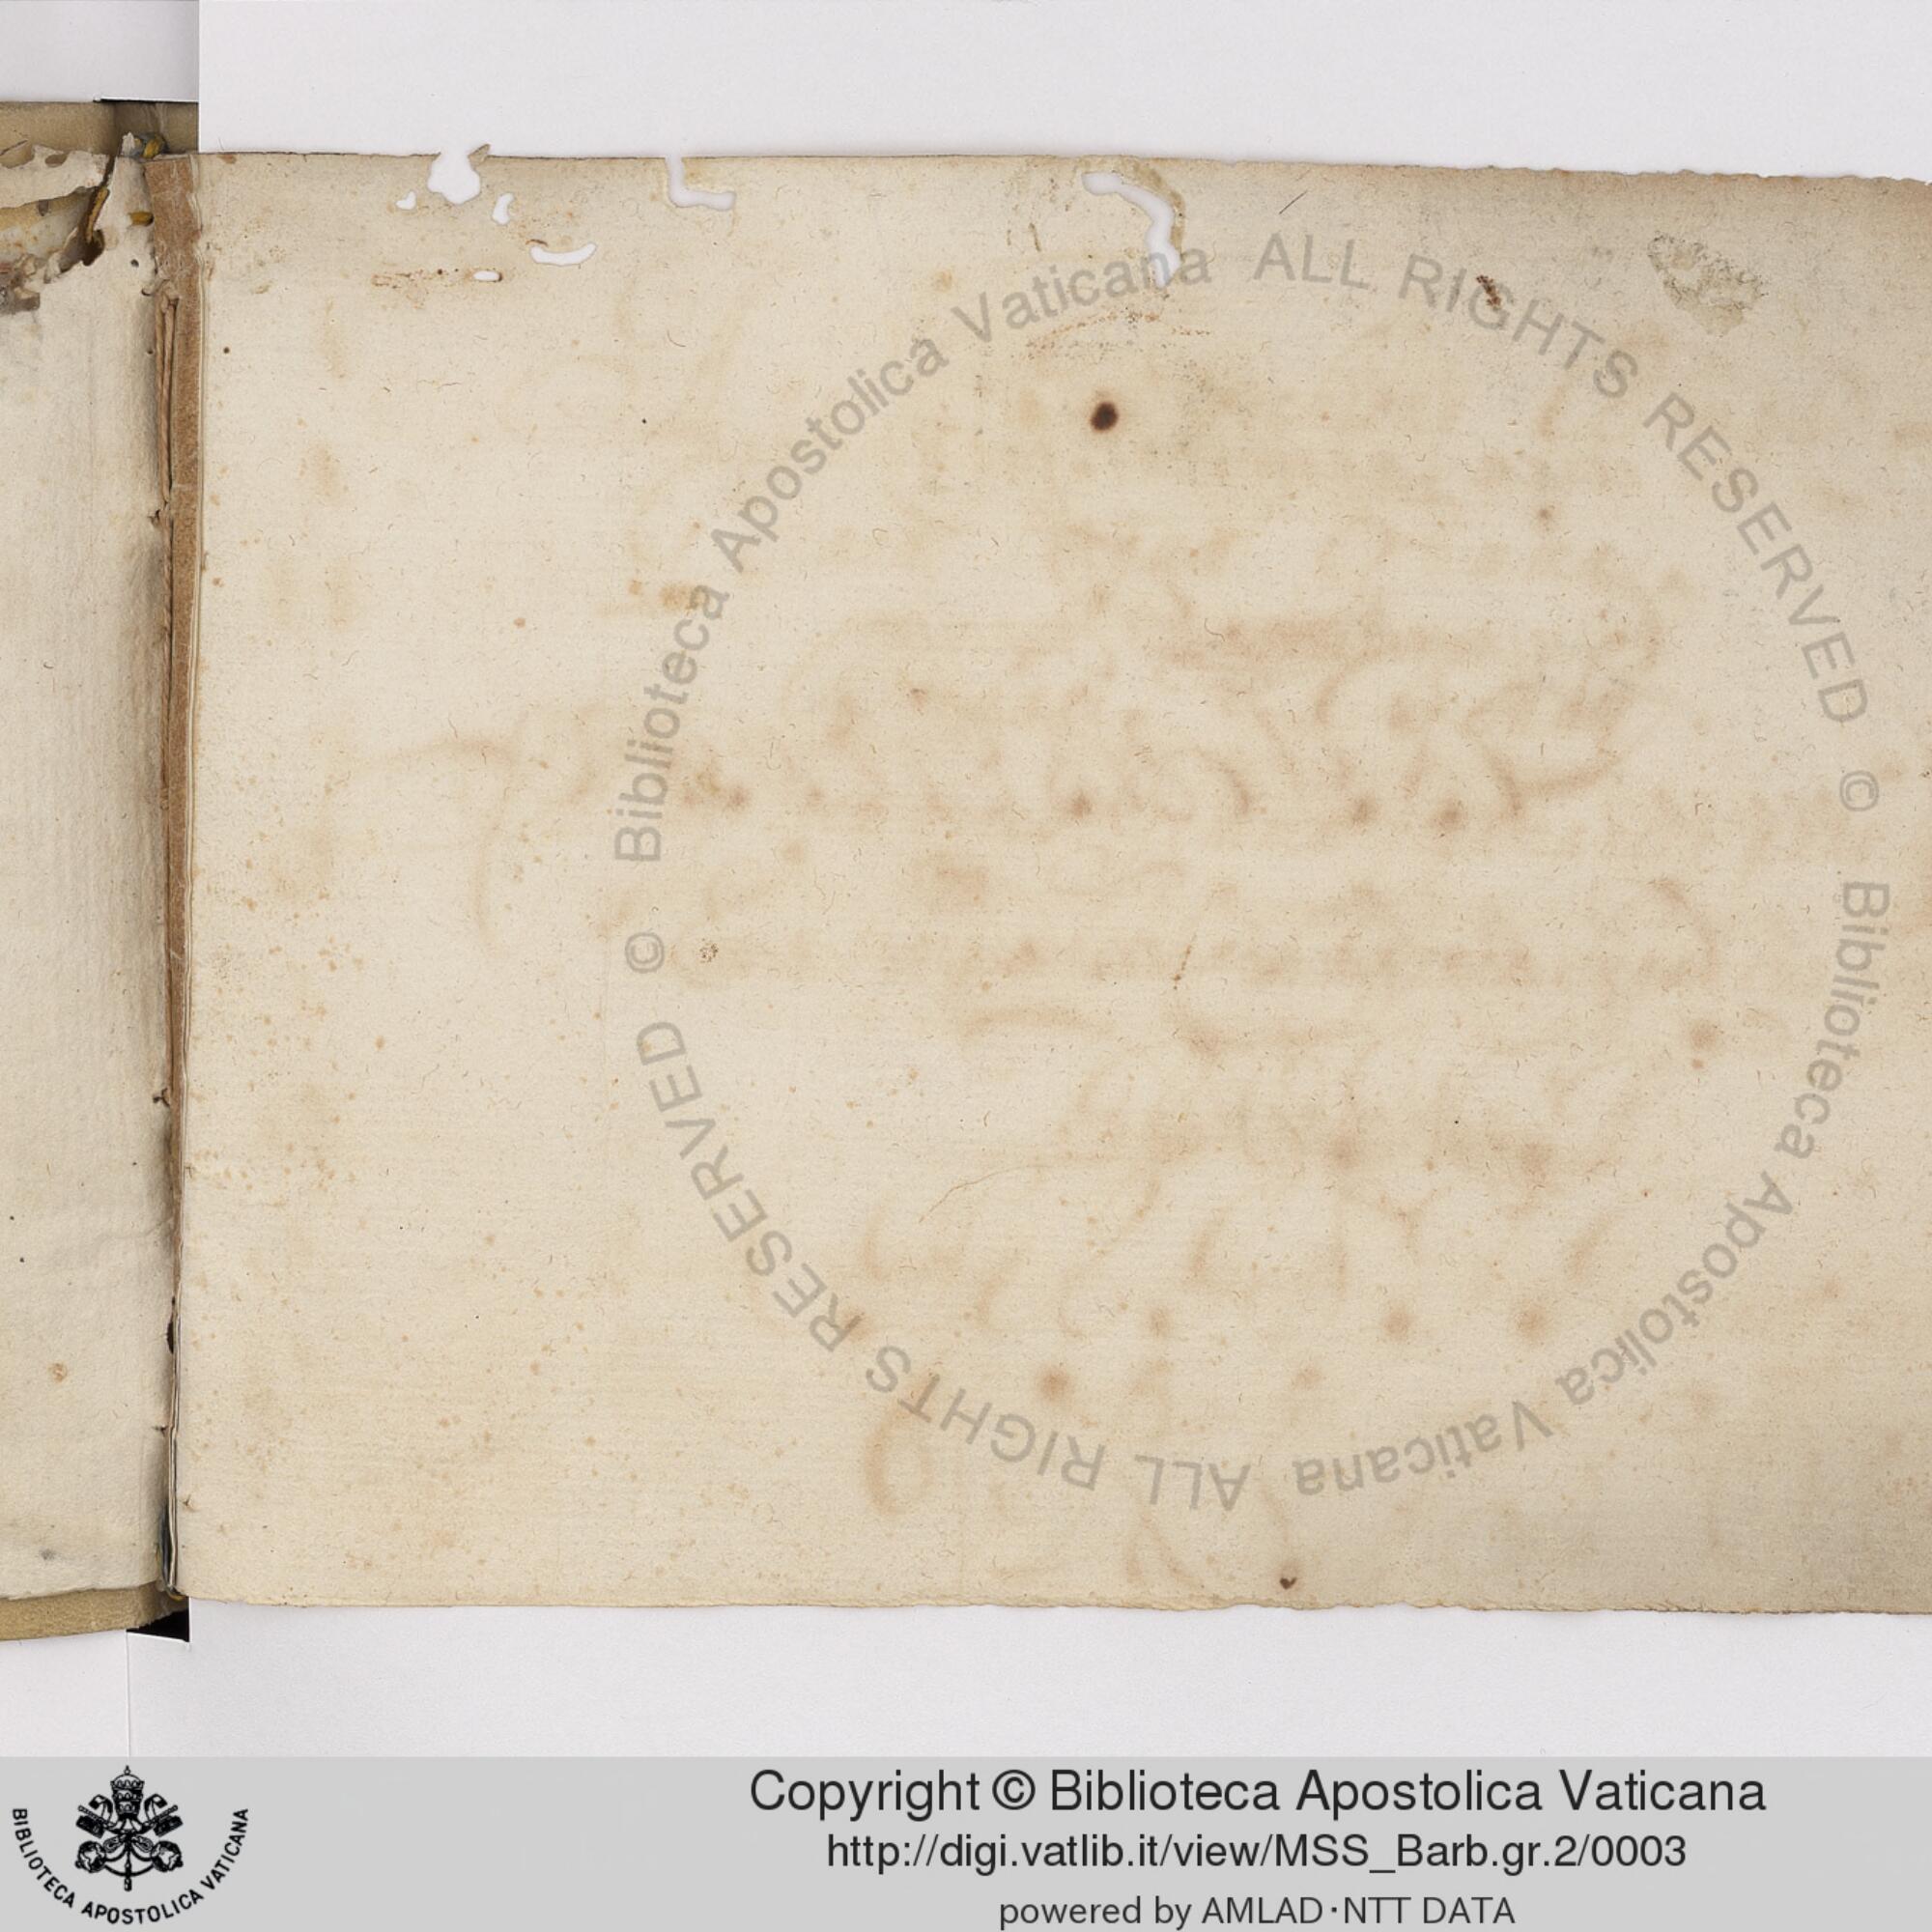 © Biblioteca Apostolica Vaticana ALL RIGHTS RESERVED
© Biblioteca Apostolica Vaticana ALL RIGHTS RESERVED
BIBLIOTECA APOSTOLICA VATICANA
Copyright © Biblioteca Apostolica Vaticana
http://digi.vatlib.it/view/MSS_Barb.gr.2/0003
powered by AMLAD·NTT DATA